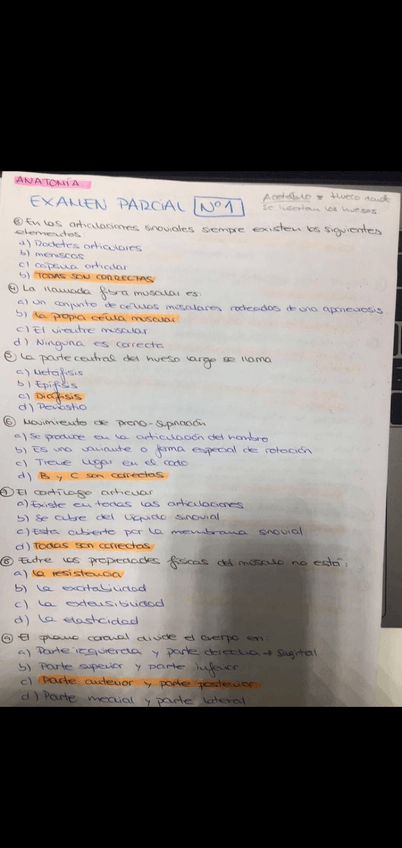 ANATOMÍA
EXAMEN PARCIAL Nº1
Acetábulo → Hueco donde
se insertan los huesos
③ En las articulaciones sinoviales siempre existen los siguientes
elementos:
a) Rodetes articulares
b) meniscos
c) cápsula articular
b) TODAS SON CORRECTAS
④ La llamada fibra muscular es:
a) Un conjunto de células musculares rodeadas de una aponeurosis
b) la propia célula muscular
c) El vientre muscular
d) Ninguna es correcta
⑤ La parte central del hueso largo se llama
a) Metáfisis
b) Epífisis
c) Diáfisis
d) Periostio
⑥ Movimiento de prono-supinación
a) Se produce en la articulación del hombro
b) Es una variante o forma especial de rotación
c) Tiene lugar en el codo
d) B y C son correctas
⑦ El cartílago articular
a) Existe en todas las articulaciones
b) Se cubre del líquido sinovial
c) Esta cubierto por la membrana sinovial
d) Todas son correctas
⑧ Entre las propiedades físicas del músculo no está:
a) La resistencia
b) La excitabilidad
c) La extensibilidad
d) La elasticidad
⑨ El plano coronal divide el cuerpo en:
a) Parte izquierda y parte derecha → Sagital
b) Parte superior y parte inferior
c) Parte anterior y parte posterior
d) Parte medial y parte lateral